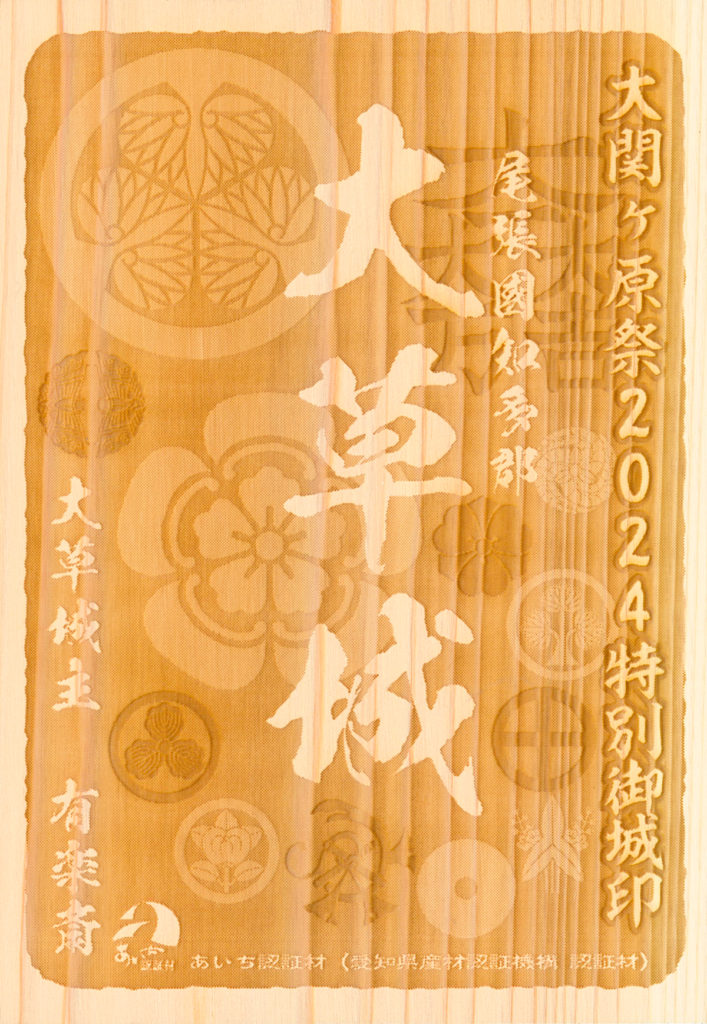 大関ヶ原祭2024特別御城印
尾張國知多郡
大草城
大草城主 有楽斎
あいち認証材 (愛知県産材認証機構 認証材)